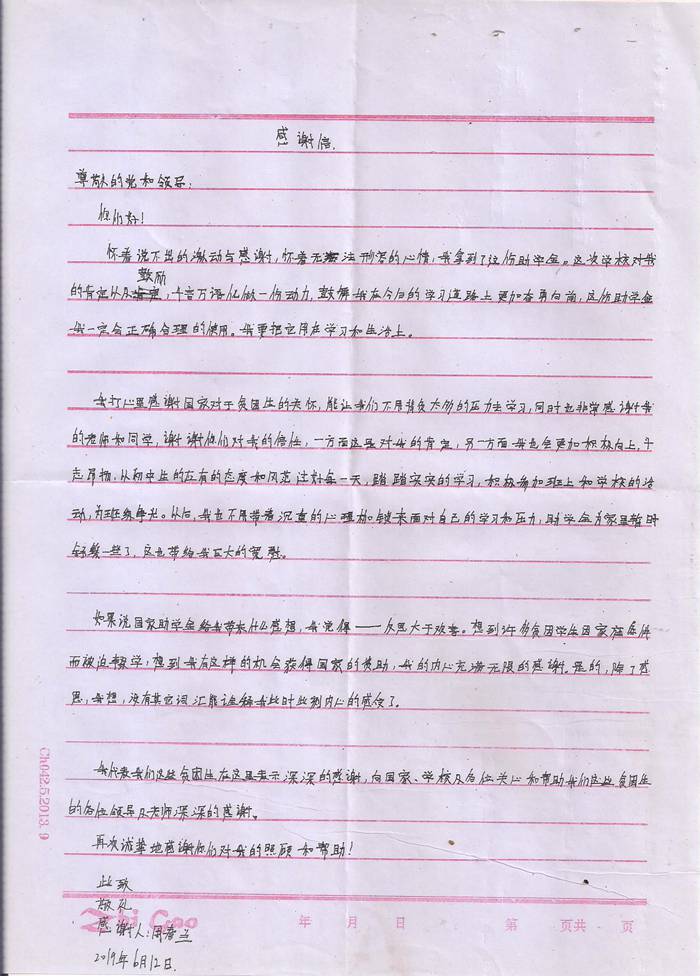 感谢信.
尊敬的党和领导:
你们好!
怀着说不出的激动与感谢,怀着无法形容的心情,我拿到了这份助学金。这次学校对我
鼓励
的肯定以及,千言万语化做一份动力,鼓舞我在今后的学习道路上更加奋勇向前,这份助学金
我一定会正确合理的使用。我要把它用在学习和生活上。
我打心里感谢国家对于贫困生的关怀,能让我们不用背负太多的压力去学习,同时也非常感谢我
的老师和同学,谢谢你们对我的信任,一方面这是对我的肯定,另一方面我也会更加积极向上,斗
志昂扬,从初中生的应有的态度和风范过好每一天,踏踏实实的学习,积极参加班上和学校的活
动,为班级争光。从后,我也不用带着沉重的心理枷锁来面对自己的学习和压力,助学金为家里暂时
轻松一些了,这也带给我巨大的宽慰。
如果说国家助学金给我带来什么感想,我觉得——反思大于欢喜。想到许多贫困学生因家庭
而被迫辍学;想到我有这样的机会获得国家的赞助,我的内心充满无限的感谢。是的,除了感
恩,我想,没有其它词汇能诠释我此时此刻内心的感受了。
我代表我们这些贫困生在这里表示深深的感谢,向国家、学校及各位关心和帮助我们这些贫困生
的各位领导及老师深深的感谢。
再次诚挚地感谢你们对我的照顾和帮助!
此致
敬礼
感谢人:周春兰
2019年6月12日.
年 月 日 第 页共 页
Zhi Gao
Ch042.5.2013.9